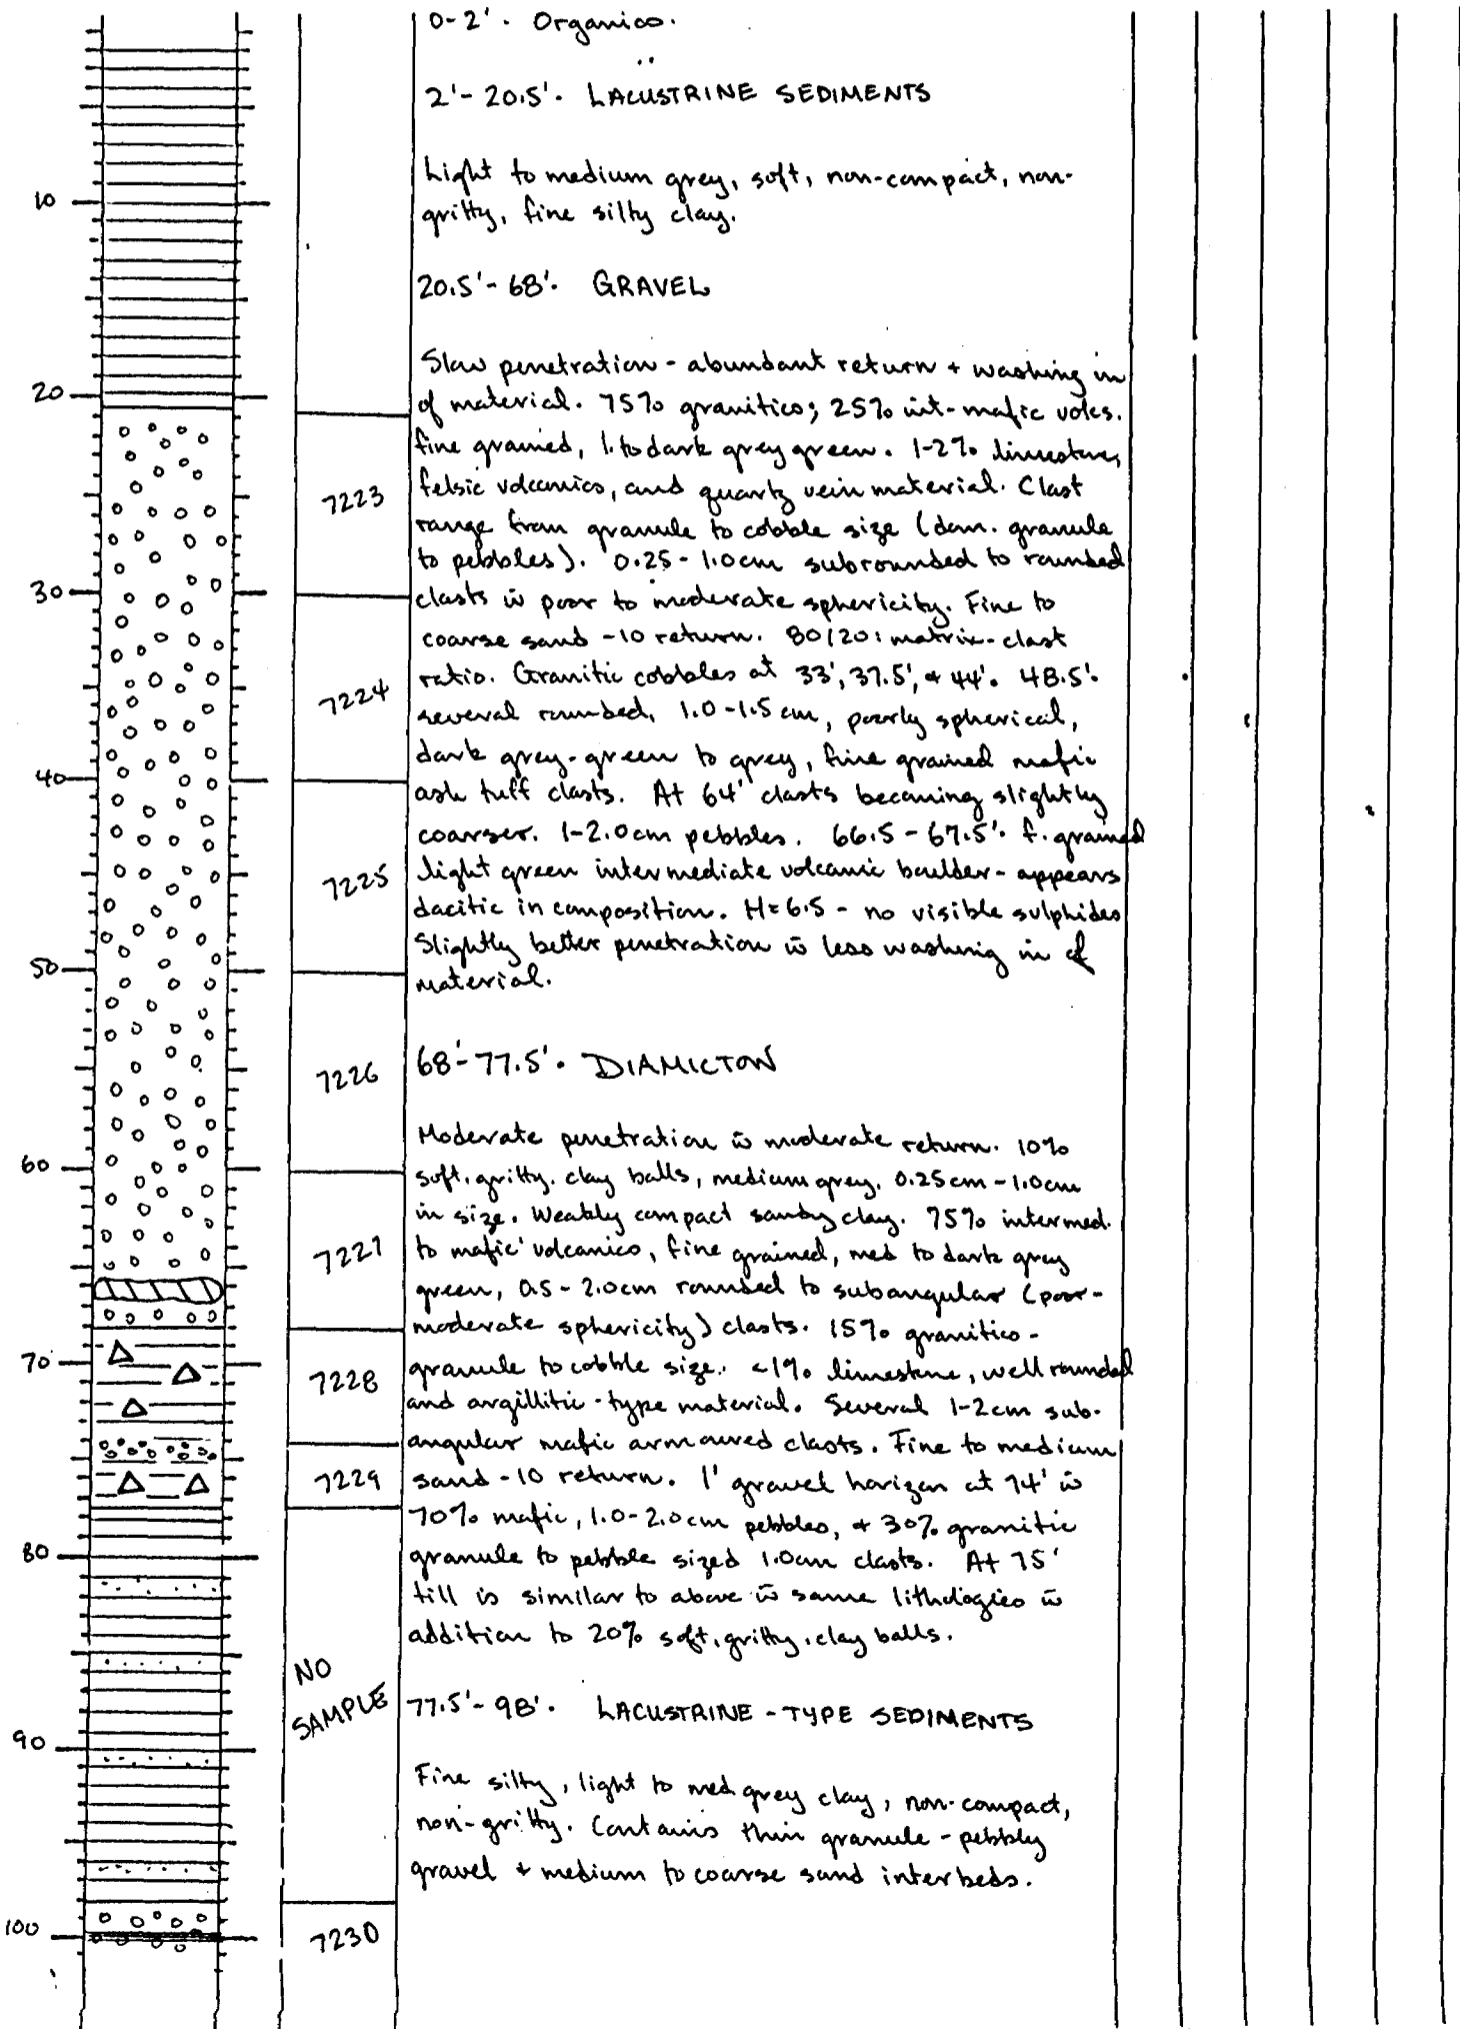 0-2'. Organics.
2'-20.5'. LACUSTRINE SEDIMENTS
Light to medium grey, soft, non-compact, non-
10
gritty, fine silty clay.
20.5'-68'. GRAVEL
Slow penetration - abundant return + washing in
20
of material. 75% granitics; 25% int-mafic volcs.
fine grained, l. to dark grey green. 1-2% limestone,
7223
felsic volcanics, and quartz vein material. Clast
range from granule to cobble size (dom. granule
to pebbles). 0.25-1.0cm subrounded to rounded
30
clasts w̄ poor to moderate sphericity. Fine to
coarse sand -10 return. 80/20: matrix-clast
7224
ratio. Granitic cobbles at 33', 37.5', + 44'. 48.5'.
several rounded, 1.0-1.5 cm, poorly spherical,
dark grey-green to grey, fine grained mafic
40
ash tuff clasts. At 64' clasts becoming slightly
coarser. 1-2.0cm pebbles. 66.5-67.5'. f. grained
7225
light green intermediate volcanic boulder - appears
dacitic in composition. H=6.5 - no visible sulphides
Slightly better penetration w̄ less washing in of
50
material.
7226
68'-77.5'. DIAMICTON
Moderate penetration w̄ moderate return. 10%
60
soft, gritty, clay balls, medium grey, 0.25cm-1.0cm
in size. Weakly compact sandy clay. 75% intermed.
7227
to mafic volcanics, fine grained, med to dark grey
green, 0.5-2.0cm rounded to subangular (poor-
moderate sphericity) clasts. 15% granitics -
70
7228
granule to cobble size. <1% limestone, well rounded
and argillitic-type material. Several 1-2cm sub-
angular mafic armoured clasts. Fine to medium
7229
sand -10 return. 1' gravel horizon at 74' w̄
70% mafic, 1.0-2.0cm pebbles, + 30% granitic
80
granule to pebble sized 1.0cm clasts. At 75'
till is similar to above w̄ same lithologies w̄
addition to 20% soft, gritty, clay balls.
NO
SAMPLE
77.5'-98'. LACUSTRINE-TYPE SEDIMENTS
90
Fine silty, light to med grey clay, non-compact,
non-gritty. Contains thin granule-pebbly
gravel + medium to coarse sand interbeds.
100
7230